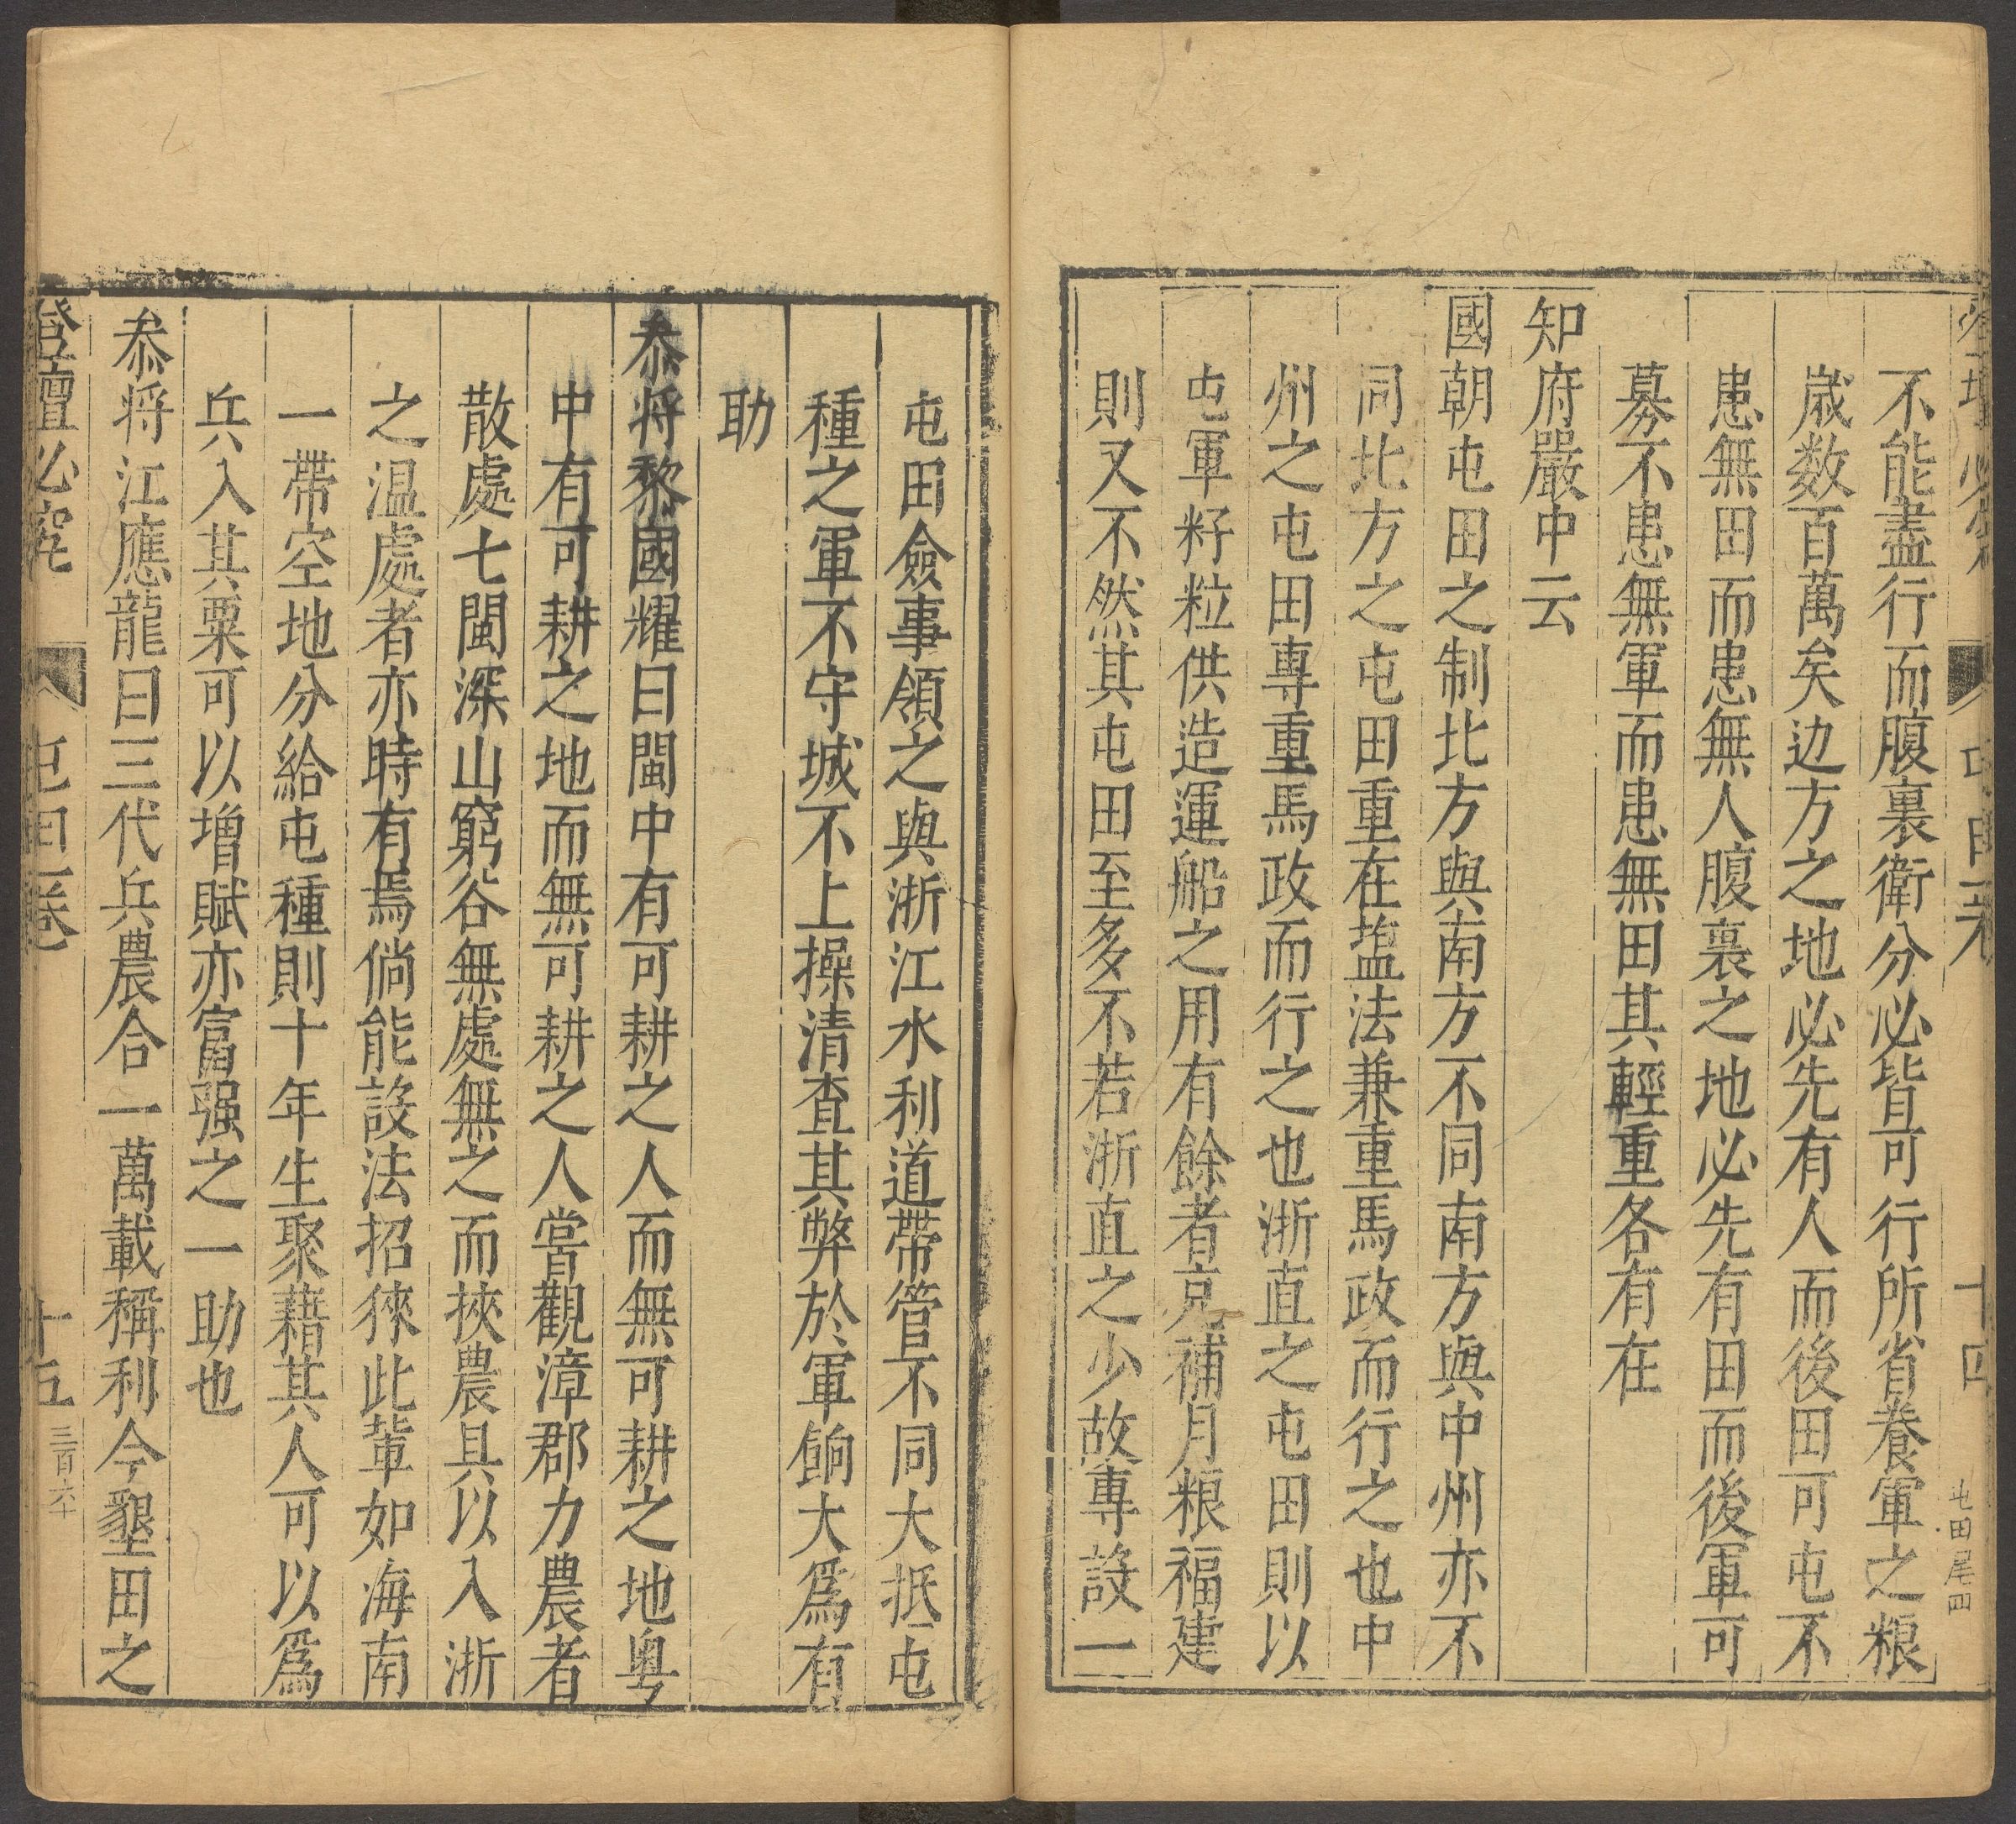 不能盡行而腹裏衛分必皆可行所省養軍之粮
歲数百萬矣边方之地必先有人而後田可屯不
患無田而患無人腹裏之地必先有田而後軍可
募不患無軍而患無田其輕重各有在
知府嚴中云
國朝屯田之制北方與南方不同南方與中州亦不
同北方之屯田重在塩法兼重馬政而行之也中
州之屯田專重馬政而行之也浙直之屯田則以
屯軍籽粒供造運船之用有餘者克補月粮福建
則又不然其屯田至多不若浙直之少故專設一
屯田僉事領之與浙江水利道帶管不同大抵屯
種之軍不守城不上操清查其弊於軍餉大爲有
助
叅将黎國耀曰閩中有可耕之人而無可耕之地粤
中有可耕之地而無可耕之人嘗觀漳郡力農者
散處七閩深山窮谷無處無之而挾農具以入浙
之温處者亦時有焉倘能設法招徠此軰如海南
一帶空地分給屯種則十年生聚藉其人可以爲
兵入其粟可以增賦亦富强之一助也
叅将江應龍曰三代兵農合一萬載稱利今墾田之
登壇必究 屯田二卷 十五 三百六十